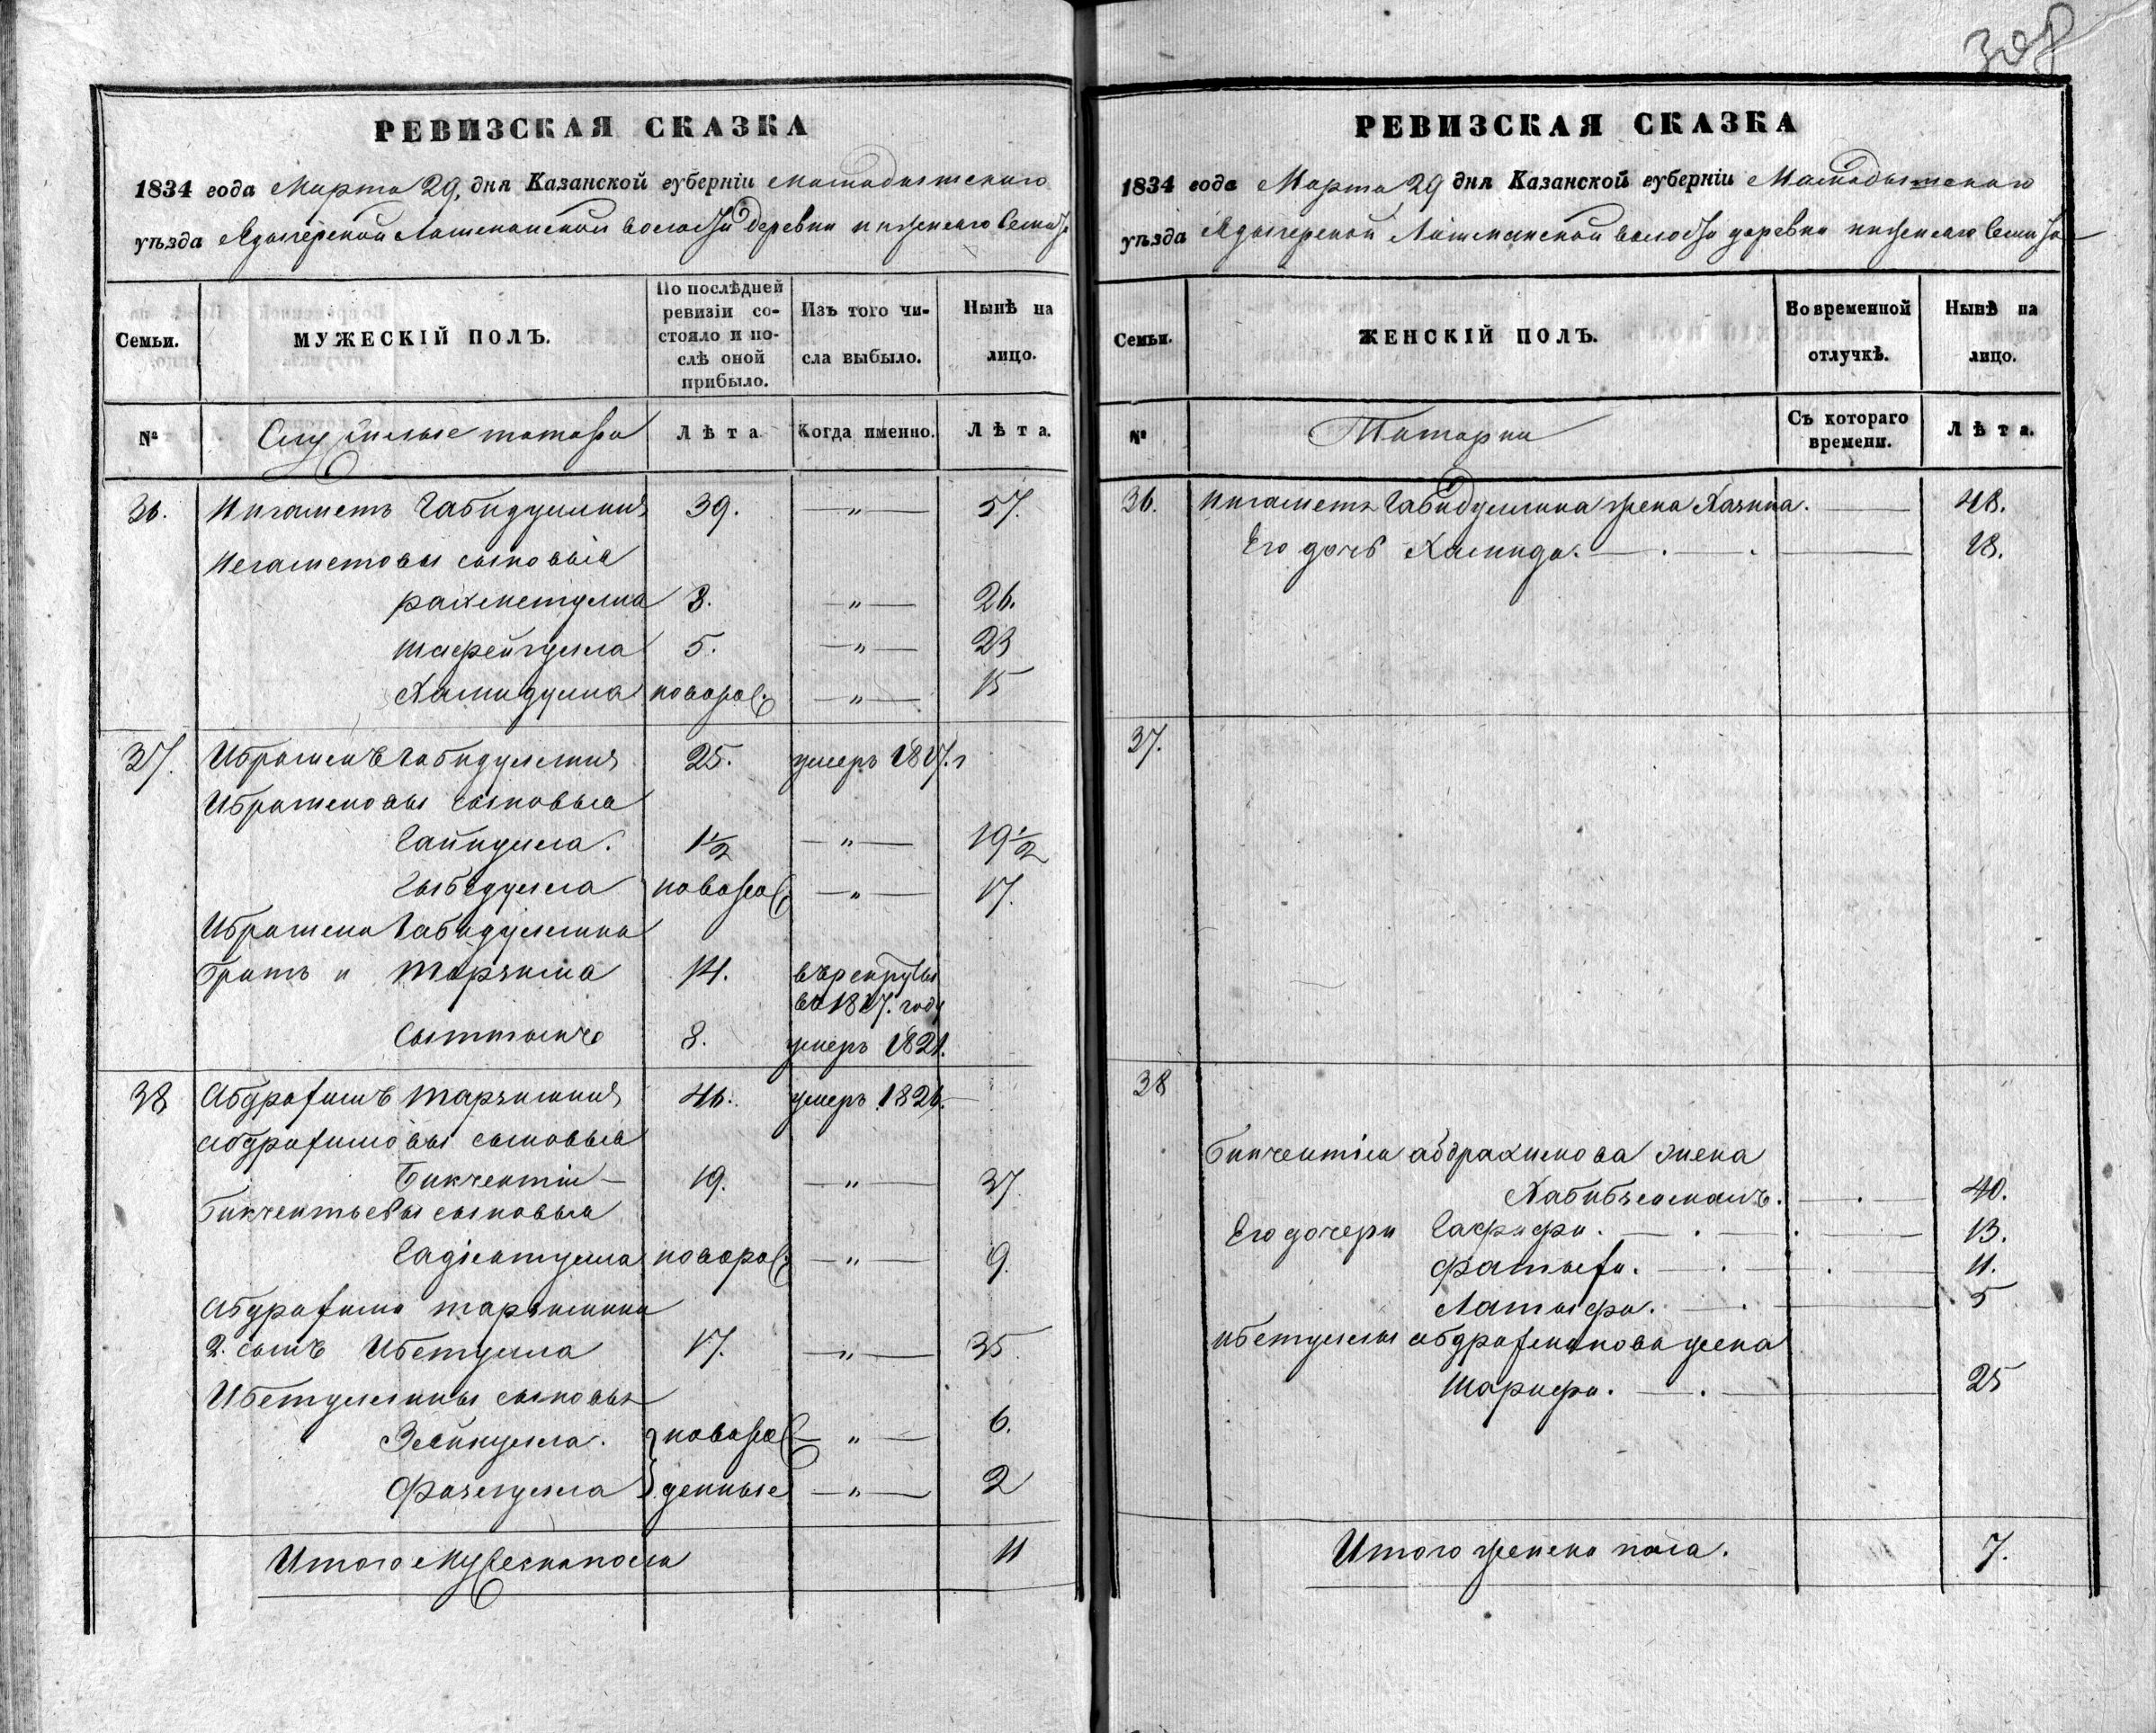 308
РЕВИЗСКАЯ СКАЗКА
1834 года Марта 29, дня Казанской губерніи Мамадышскаго
уѣзда Ядыгерской Лашманской волости деревни нижнего
Семьи.
МУЖЕСКІЙ ПОЛЪ.
По послѣдней ревизіи состояло и послѣ оной прибыло.
Изъ того числа выбыло.
Нынѣ на лицо.
№ Служилые татара Лѣта Когда именно. Лѣта.
36. Нигаметъ Габидуллинъ 39. —"— 57.
Негаметовы сыновья
рахметулла 8. —"— 26.
шафейгулла 5. —"— 23
Хамидулла новорож. —"— 15
37. Ибрагимъ Габидуллинъ 25. умеръ 1817. г
Ибрагимовы сыновья
Гайнулла. 1½ —"— 19½
новорож. —"— 17.
Ибрагима Габидуллина
братъ и 14. въ рекруты
во 1817. году
8. умеръ 1821.
38 Абдрахимъ 46. умеръ 1826.
абдрахимовы сыновья
Бикчентіи — 19. —"— 37
Бикчентьевы сыновья
Гадіатулла новорож. —"— 9.
Абдрахима
2. сынъ Ибетулла 17. —"— 35.
Ибетуллины сыновья
Зейнулла. новорож —"— 6.
денные —"— 2
Итого мужеска пола 11
РЕВИЗСКАЯ СКАЗКА
1834 года Марта 29 дня Казанской губерніи Мамадышскаго
уѣзда Ядыгерской Лашманской волости деревни нижнего
Семьи.
ЖЕНСКІЙ ПОЛЪ.
Во временной отлучкѣ.
Нынѣ на лицо.
№ Татарки Съ котораго времени. Лѣта.
36. Нигаметъ Габидуллина жена 48.
Его дочь Хамида. 18.
37.
38
Бикчентіи абдрахимова жена
Хабибземалъ. 40.
Его дочери 13.
Фатыха. 11.
Латыфа. 5
ибетуллы абдрахимнова жена
Шарифа. 25
Итого женска пола. 7.